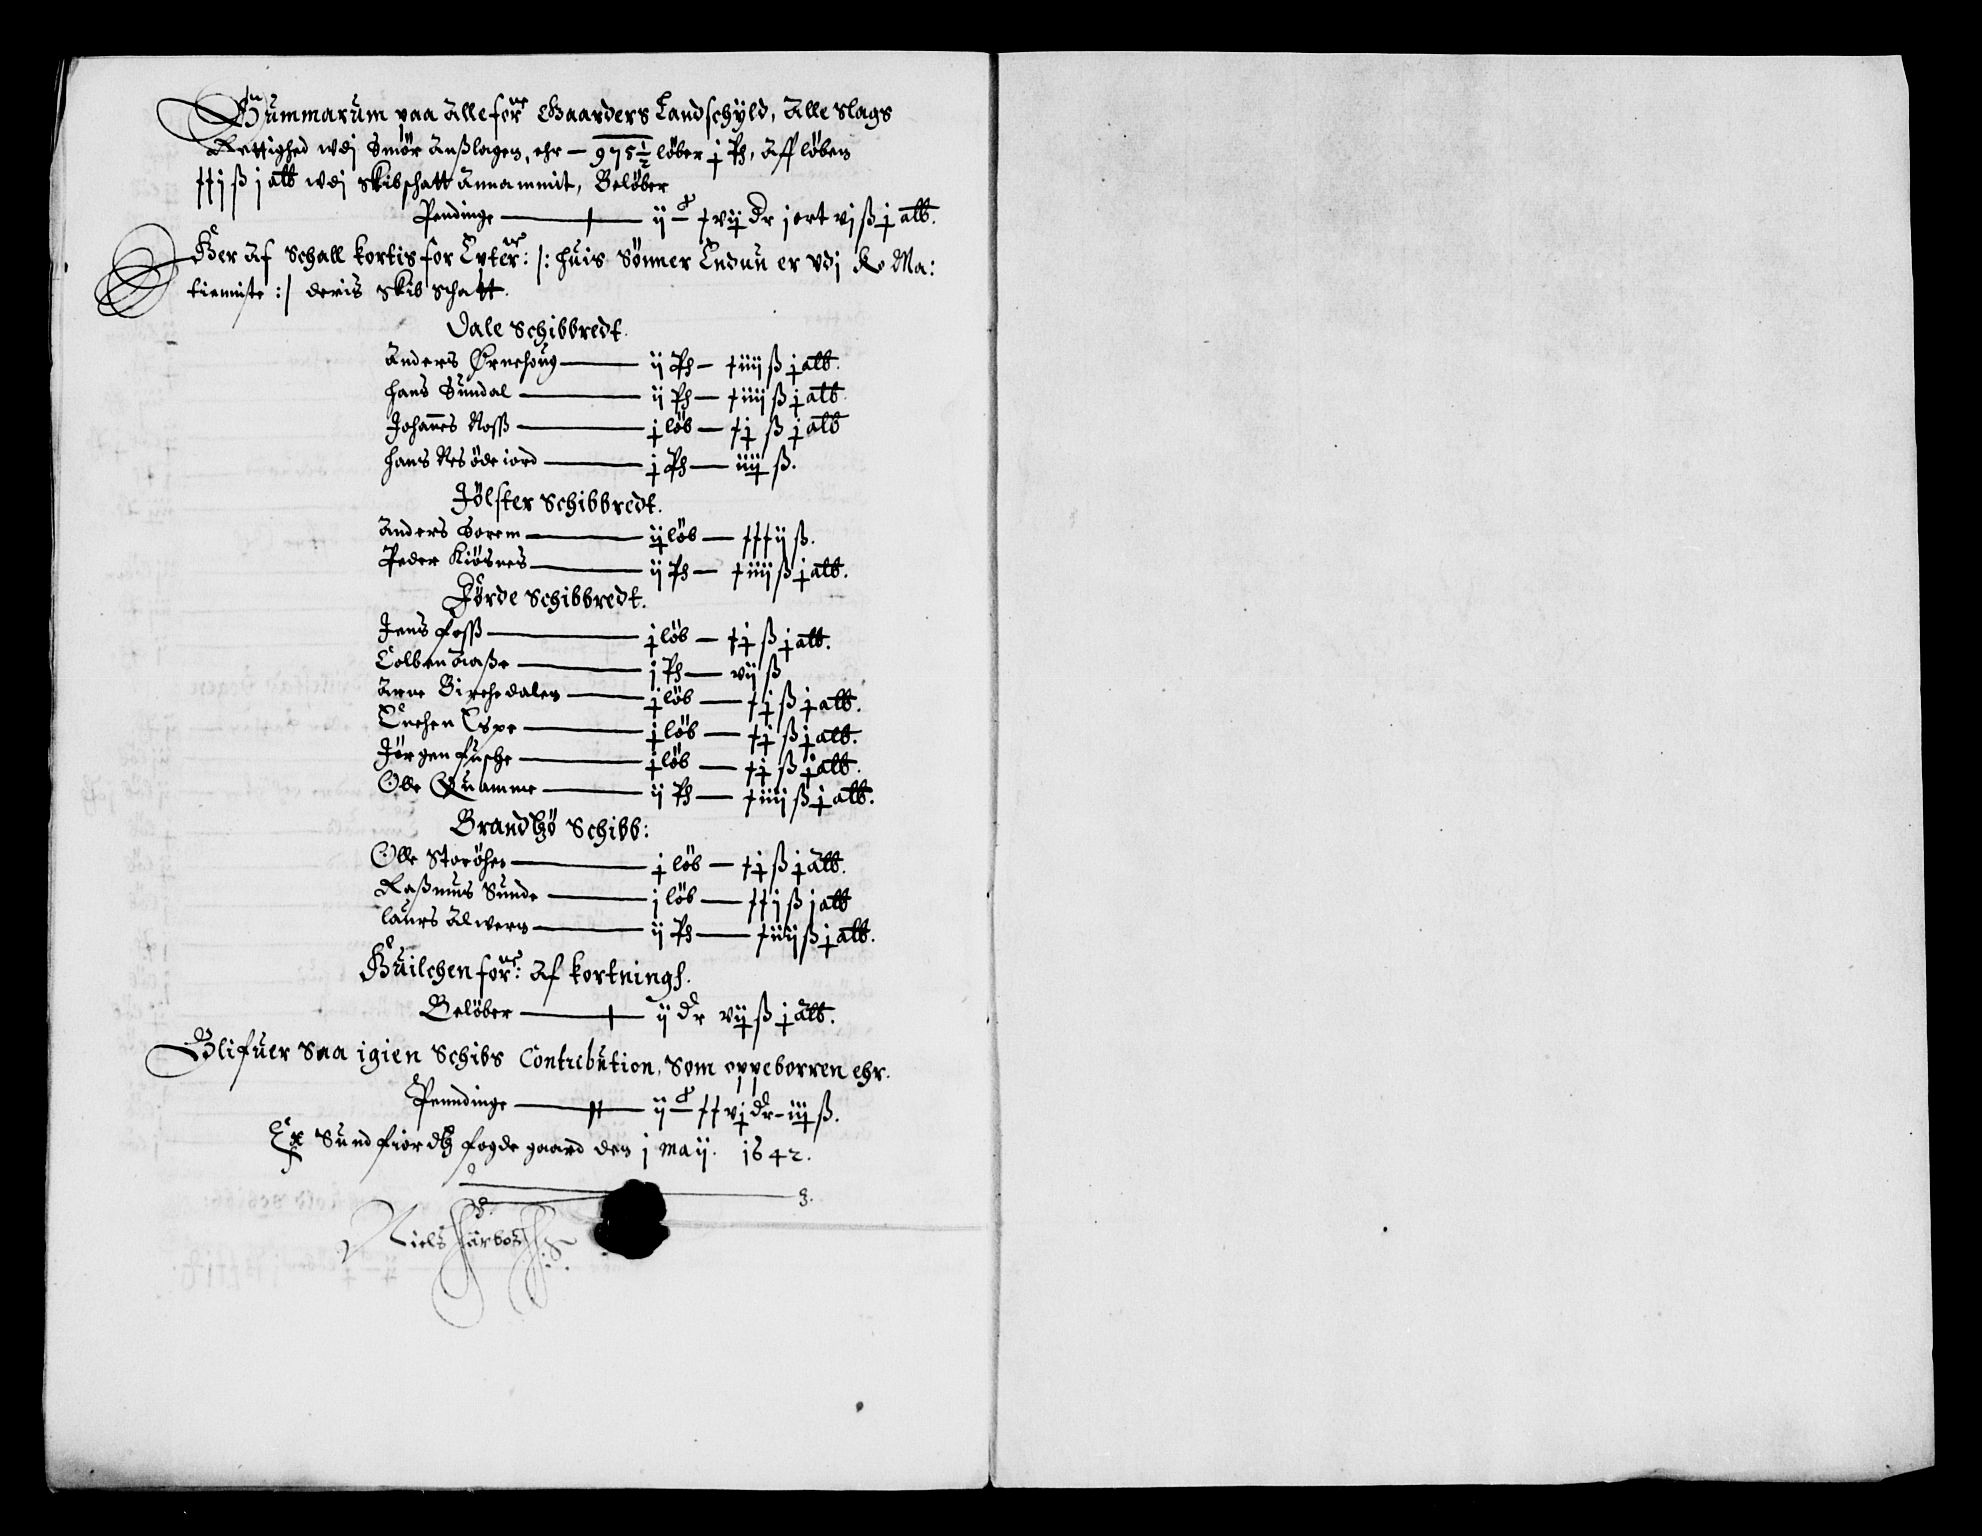 Summarum paa alle forne Gaarders Landschyld, alle slags
Rettighed wdj Smör anßlagen, ehr — 975½ löber j Ph, aff löben
xxj ß j alb wdj Skibschatt annammit, Belöber
Pendinge — ijC xvij dr j ort vj ß j alb.
Her af schall kortis for Epter: /: huis Sönner Endnu er vdj Ko Ma:
tienniste :/ deris Skib schatt.
Dale Schibbredt.
Anders Ørnehoug — ij Ph — xiiij ß j alb.
Hans Sundal — ij Ph — xiiij ß j alb
Johannes Moss — j löb — xxj ß j alb
Hans Nes öde iord — j Ph — iiij ß.
Jölster Schibbredt.
Anders Sorem — ij löb — xxxij ß.
Peder Kiösnes — ij Ph — xiiij ß j alb.
Förde Schibbredt.
Jens foss — j löb — xxj ß j alb.
Colben Aaße — j Ph — vij ß
Arne Birchedalen — j löb — xxj ß j alb.
Enchen Espe — j löb — xxj ß j alb.
Jörgen fusche — j löb — xxj ß j alb.
Olle Quamme — ij Ph — xiiij ß j alb.
Brandtzö Schibb:
Olle Storöhen — j löb — xxj ß j alb.
Raßmus Sunde — j löb — xxj ß j alb
laurs Alwern — ij Ph — xiiij ß j alb.
Huilchen forne: af kortningh.
Belöber — ij dr vij ß j alb.
Blifuer saa igien Schibs Contribution, som oppeborren ehr.
Penndinge — ijC xxvj dr — iiij ß.
Ex Sundfiordtz fogde gaard den j maij. 1642.
Niels